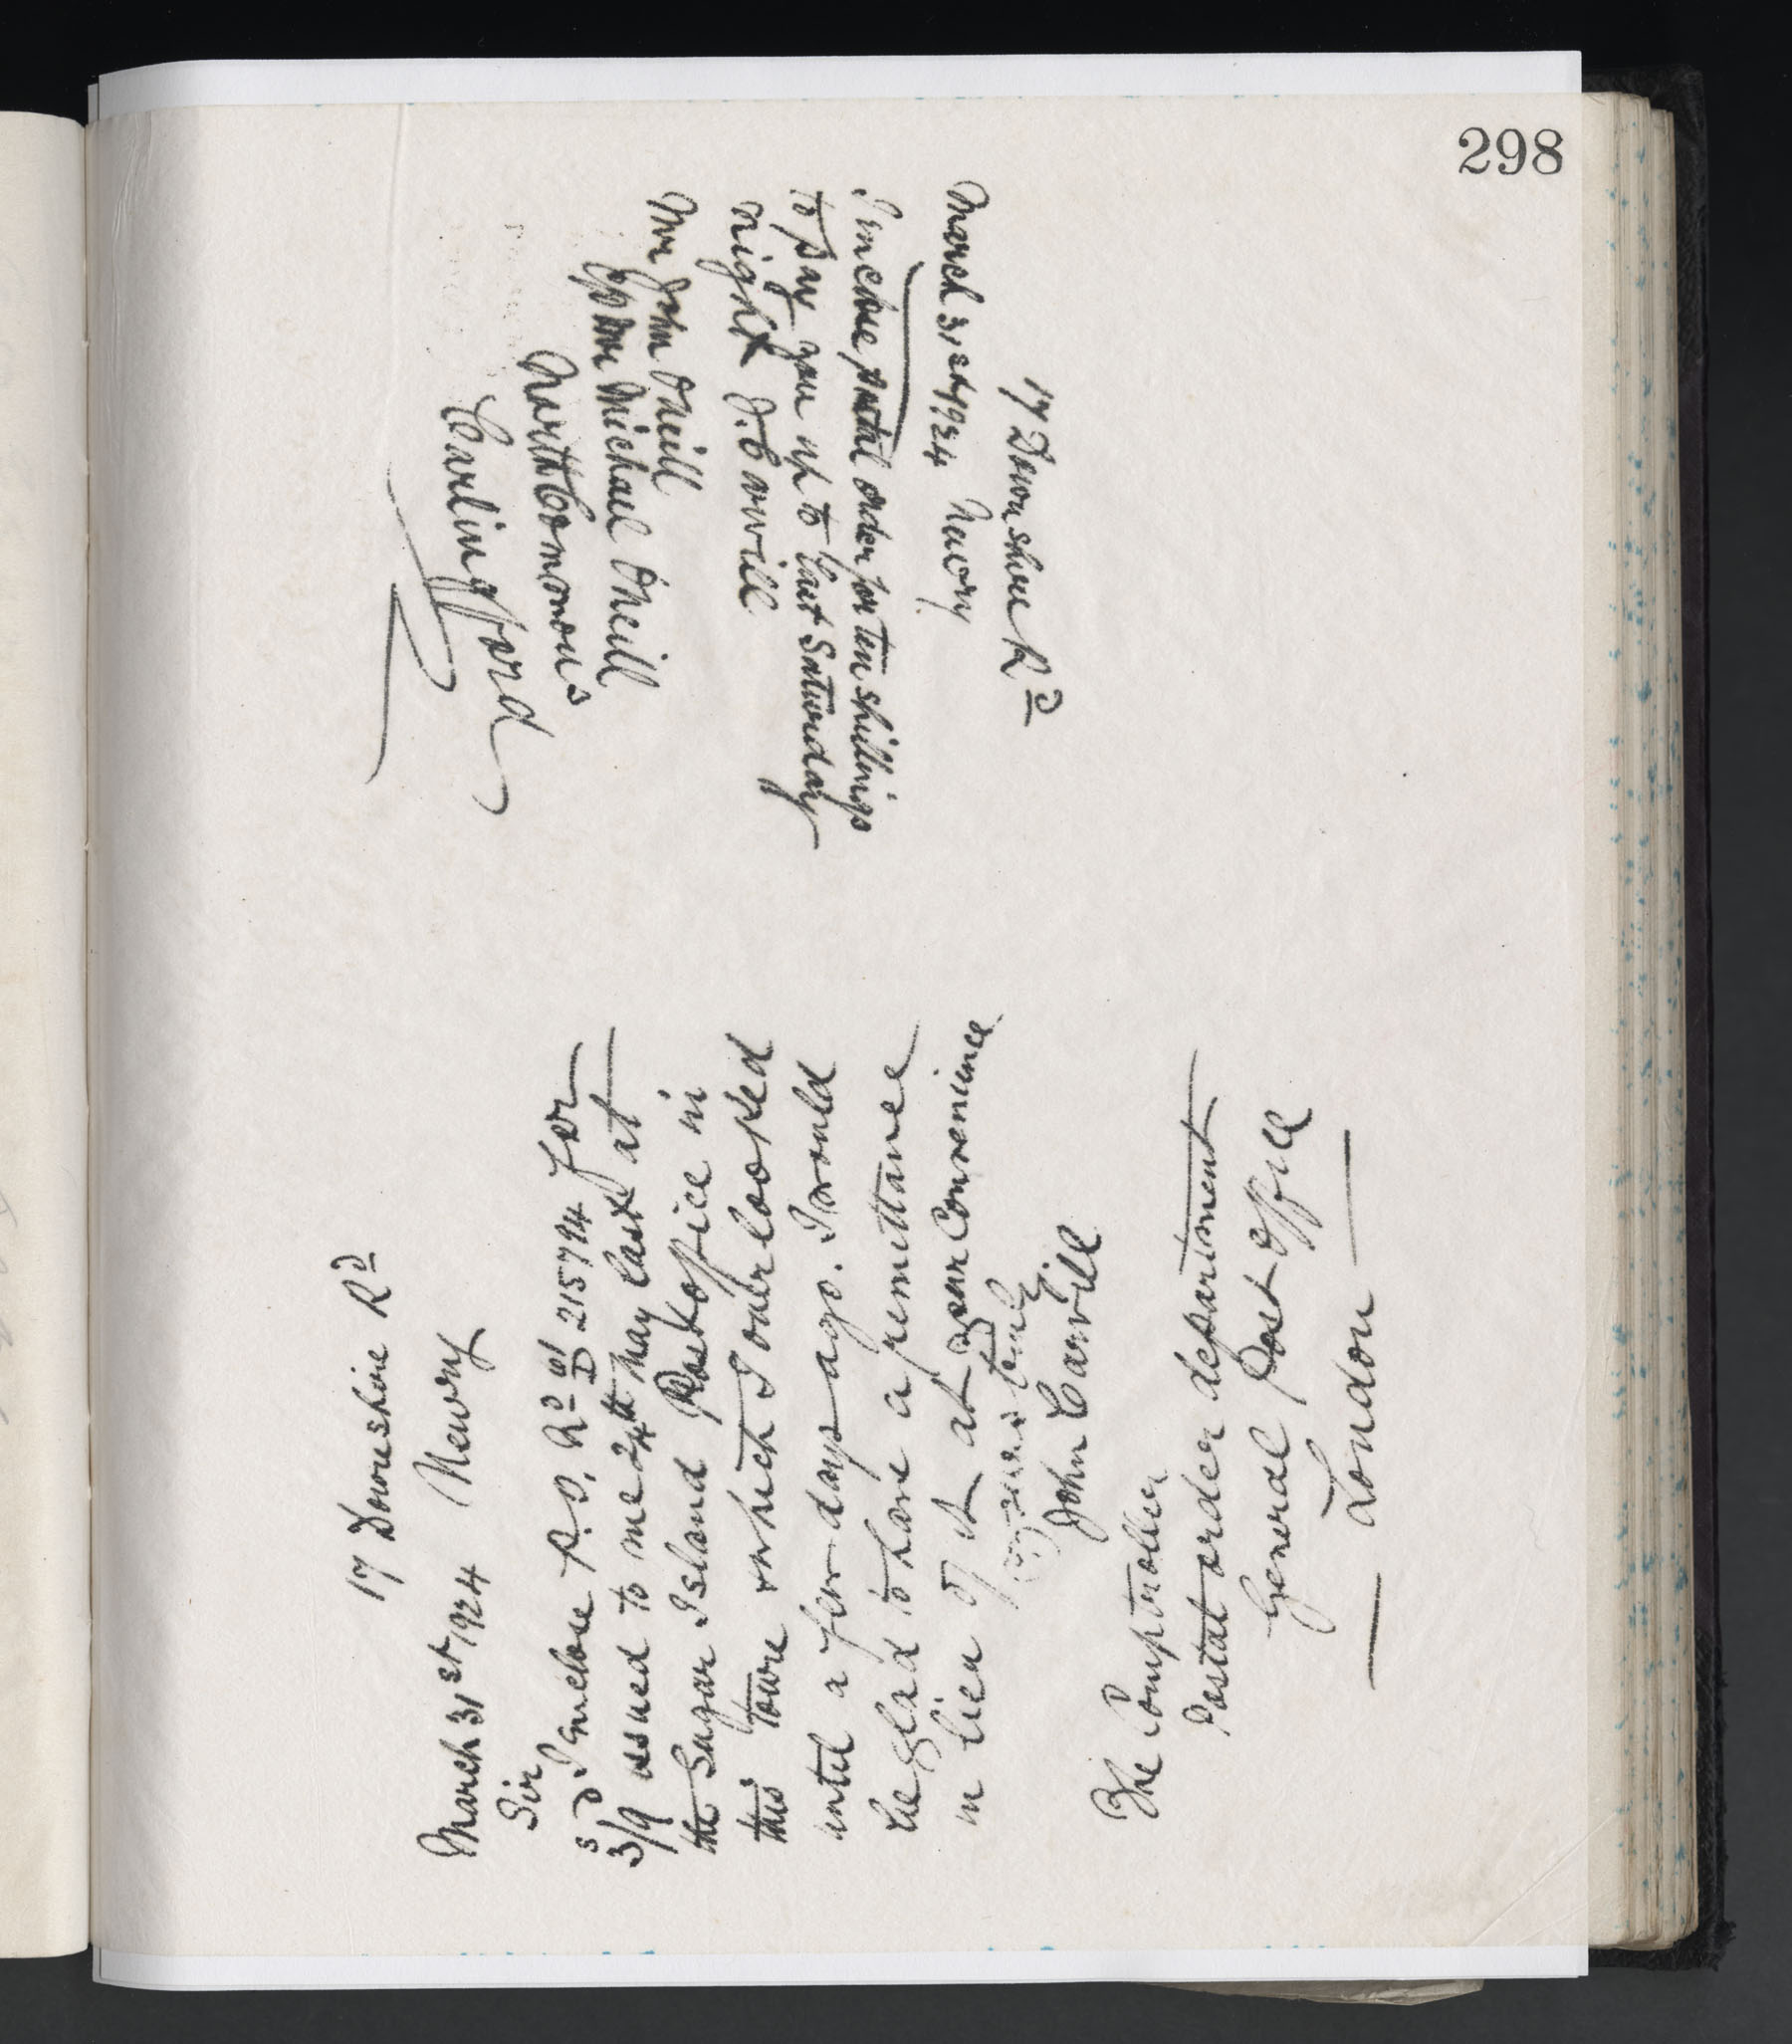 298
17 Downshire Rd
March 31st 1924 Newry
I inclose postal order for ten shillings
to pay you up to last Saturday
night J. Carvill
Mr John Oneill
c/o Mr Michael Oneill
North Commons
Carlingford
17 Downshire Rd
March 31st 1924 Newry
Sir
I Enclose P.O. 215794 for
3/9 issued to me 24th May last at
the Sugar Island Post office in
this town which I overlooked
until a few days ago. I would
be glad to have a remittance
in lieu of it at your Convenience
John Carvill
The Comptroller
Postal order department
General Post Office
London